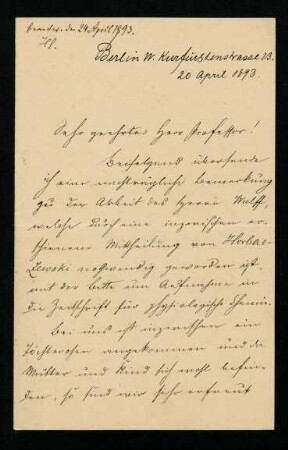 beantw. den 24. April 1893.
Berlin W. Kurfürstenstrasse 23.
20 April 1893.
Sehr geehrter Herr Professor!
Beifolgend übersende
ich eine nachträgliche Bemerkung
zu der Arbeit des Herrn Wulff,
welche durch eine inzwischen er-
schienene Mittheilung von Horbac-
zewski nothwendig geworden ist,
mit der Bitte um Aufnahme in
die Zeitschrift für physiologische Chemie.
Bei uns ist inzwischen ein
Töchterchen angekommen und da
Mutter und Kind sich wohl befin-
den, so sind wir sehr erfreut